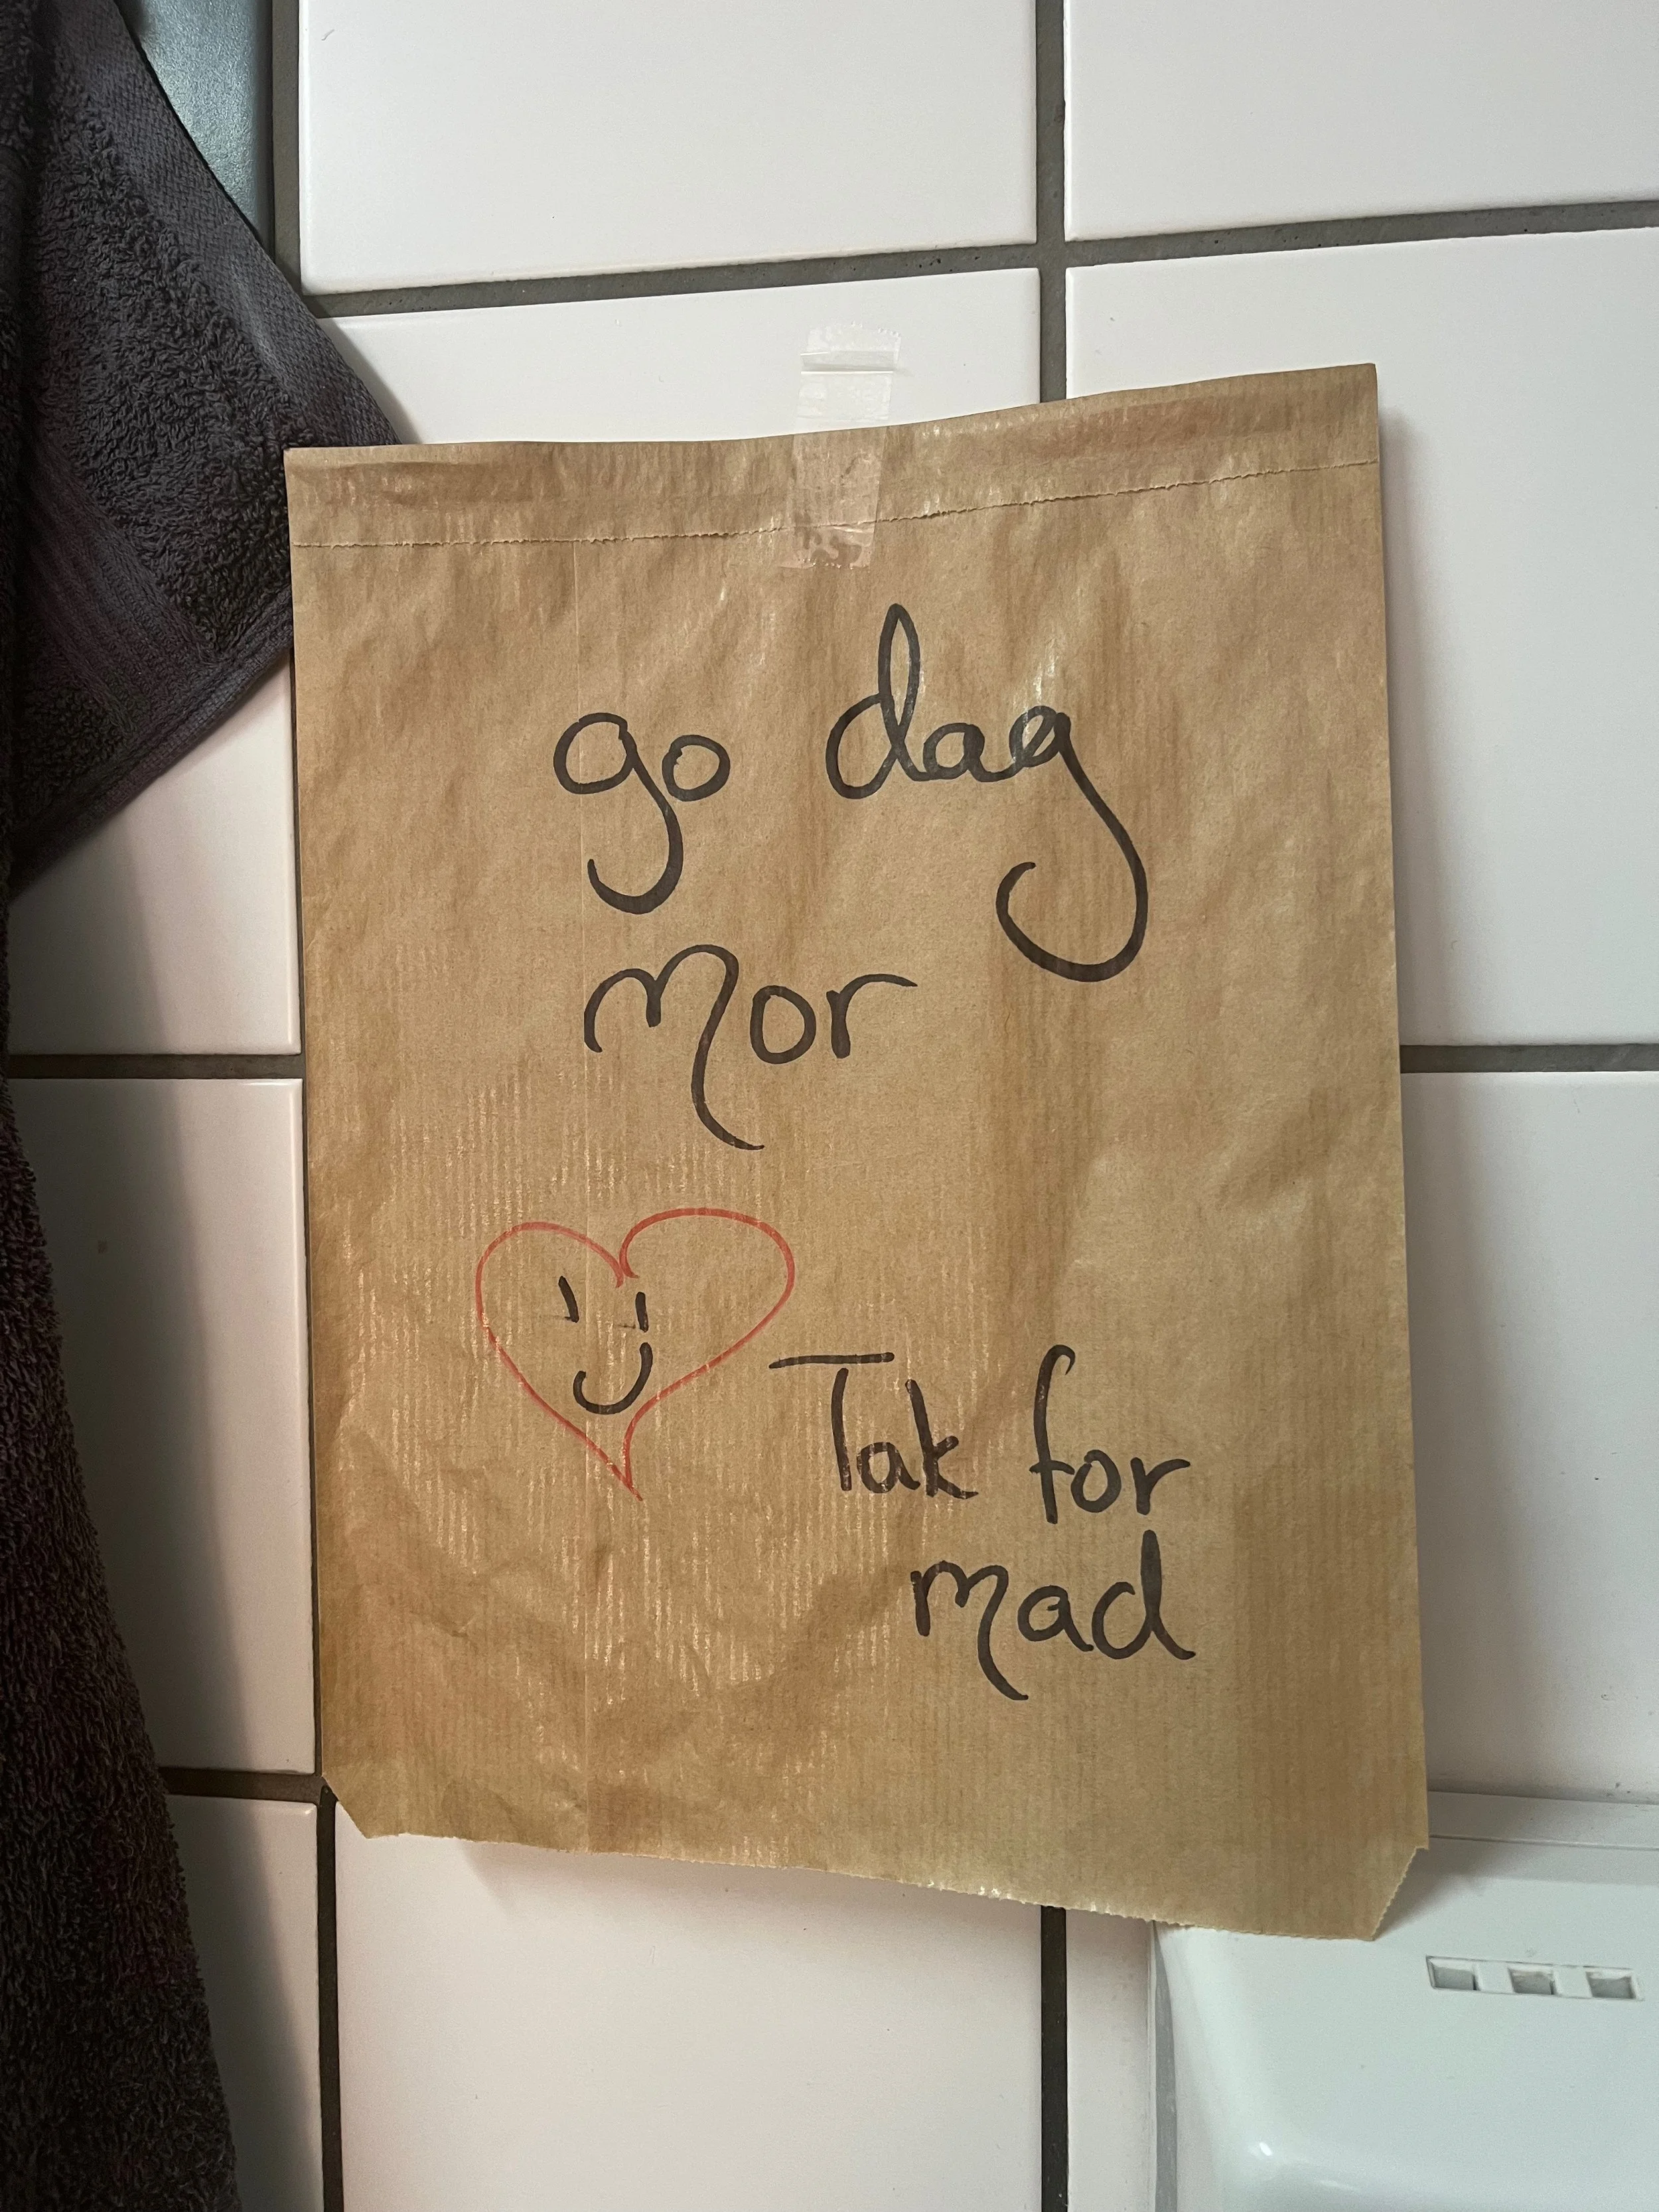 go dag
Mor
Tak for
mad